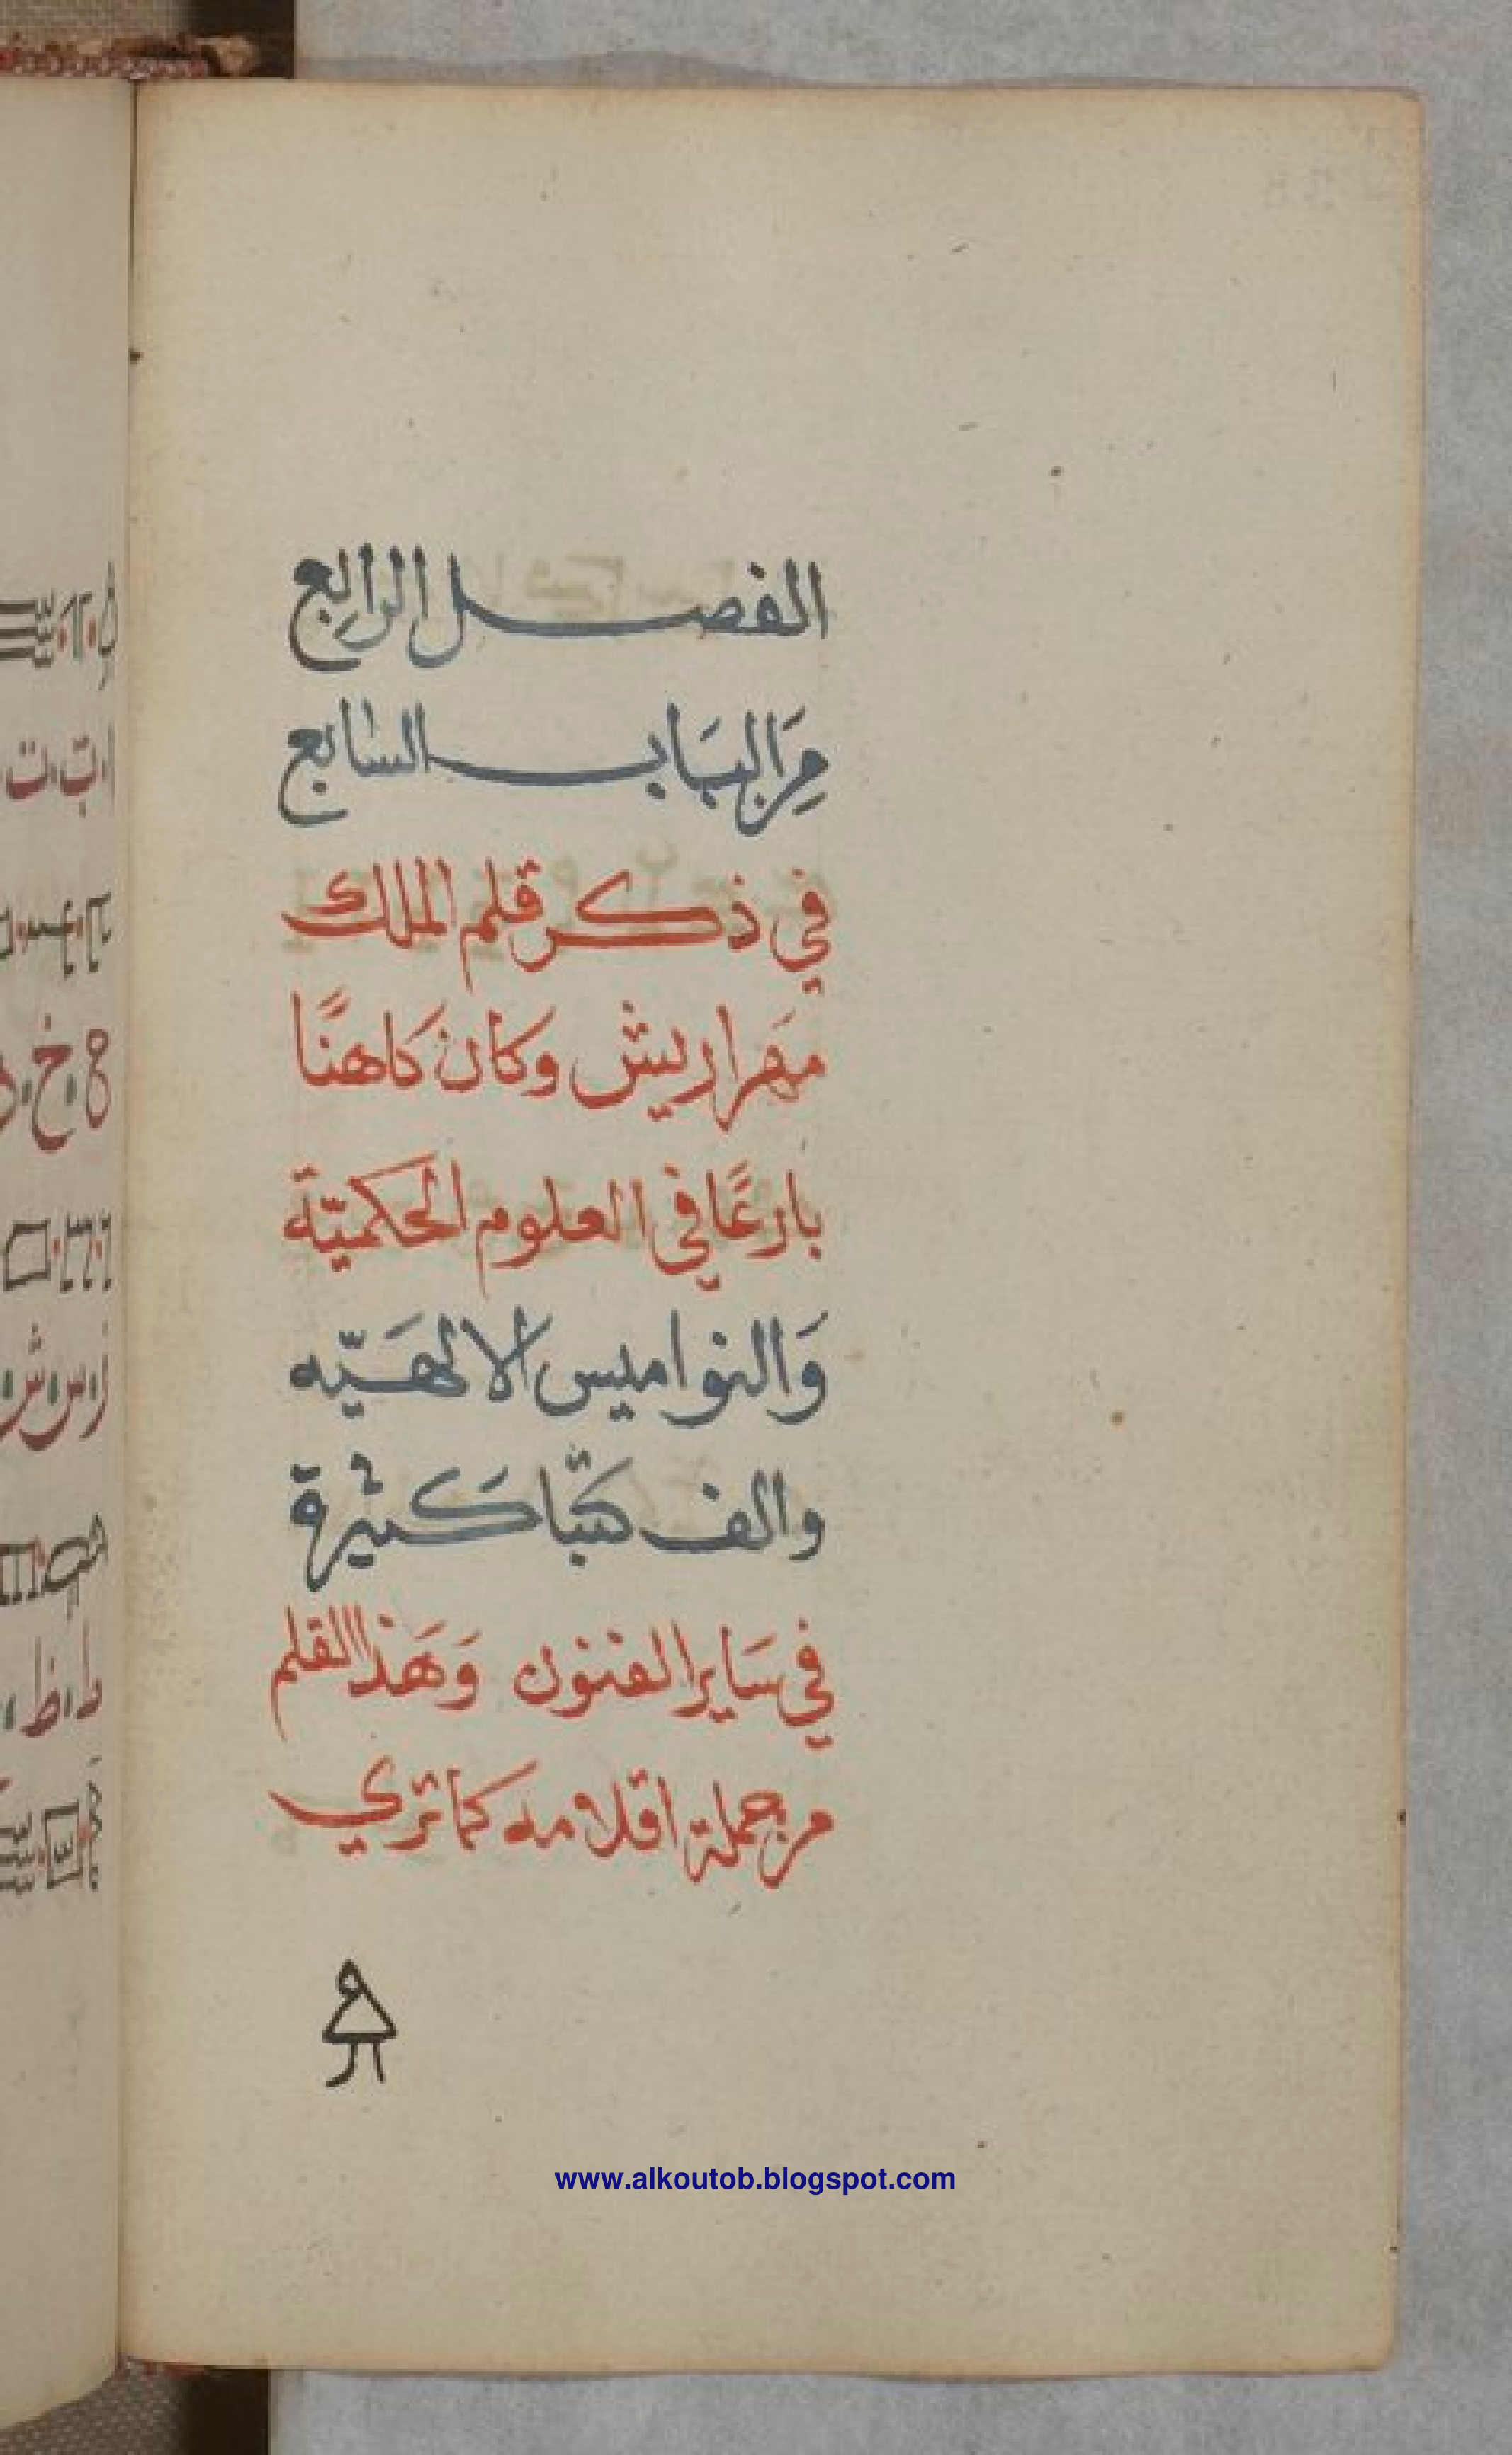 الفصل الرابع
مِنَ البَاب السابع
في ذكر قلم الملك
مَهراريش وكان كاهنًا
بارعًا في العلوم الحكميّة
وَالنواميس الالهَيّه
والف كتبًا كَثيرة
في سَاير الفنون وَهَذا القلم
من جملة اقلامه كما تري
www.alkoutob.blogspot.com